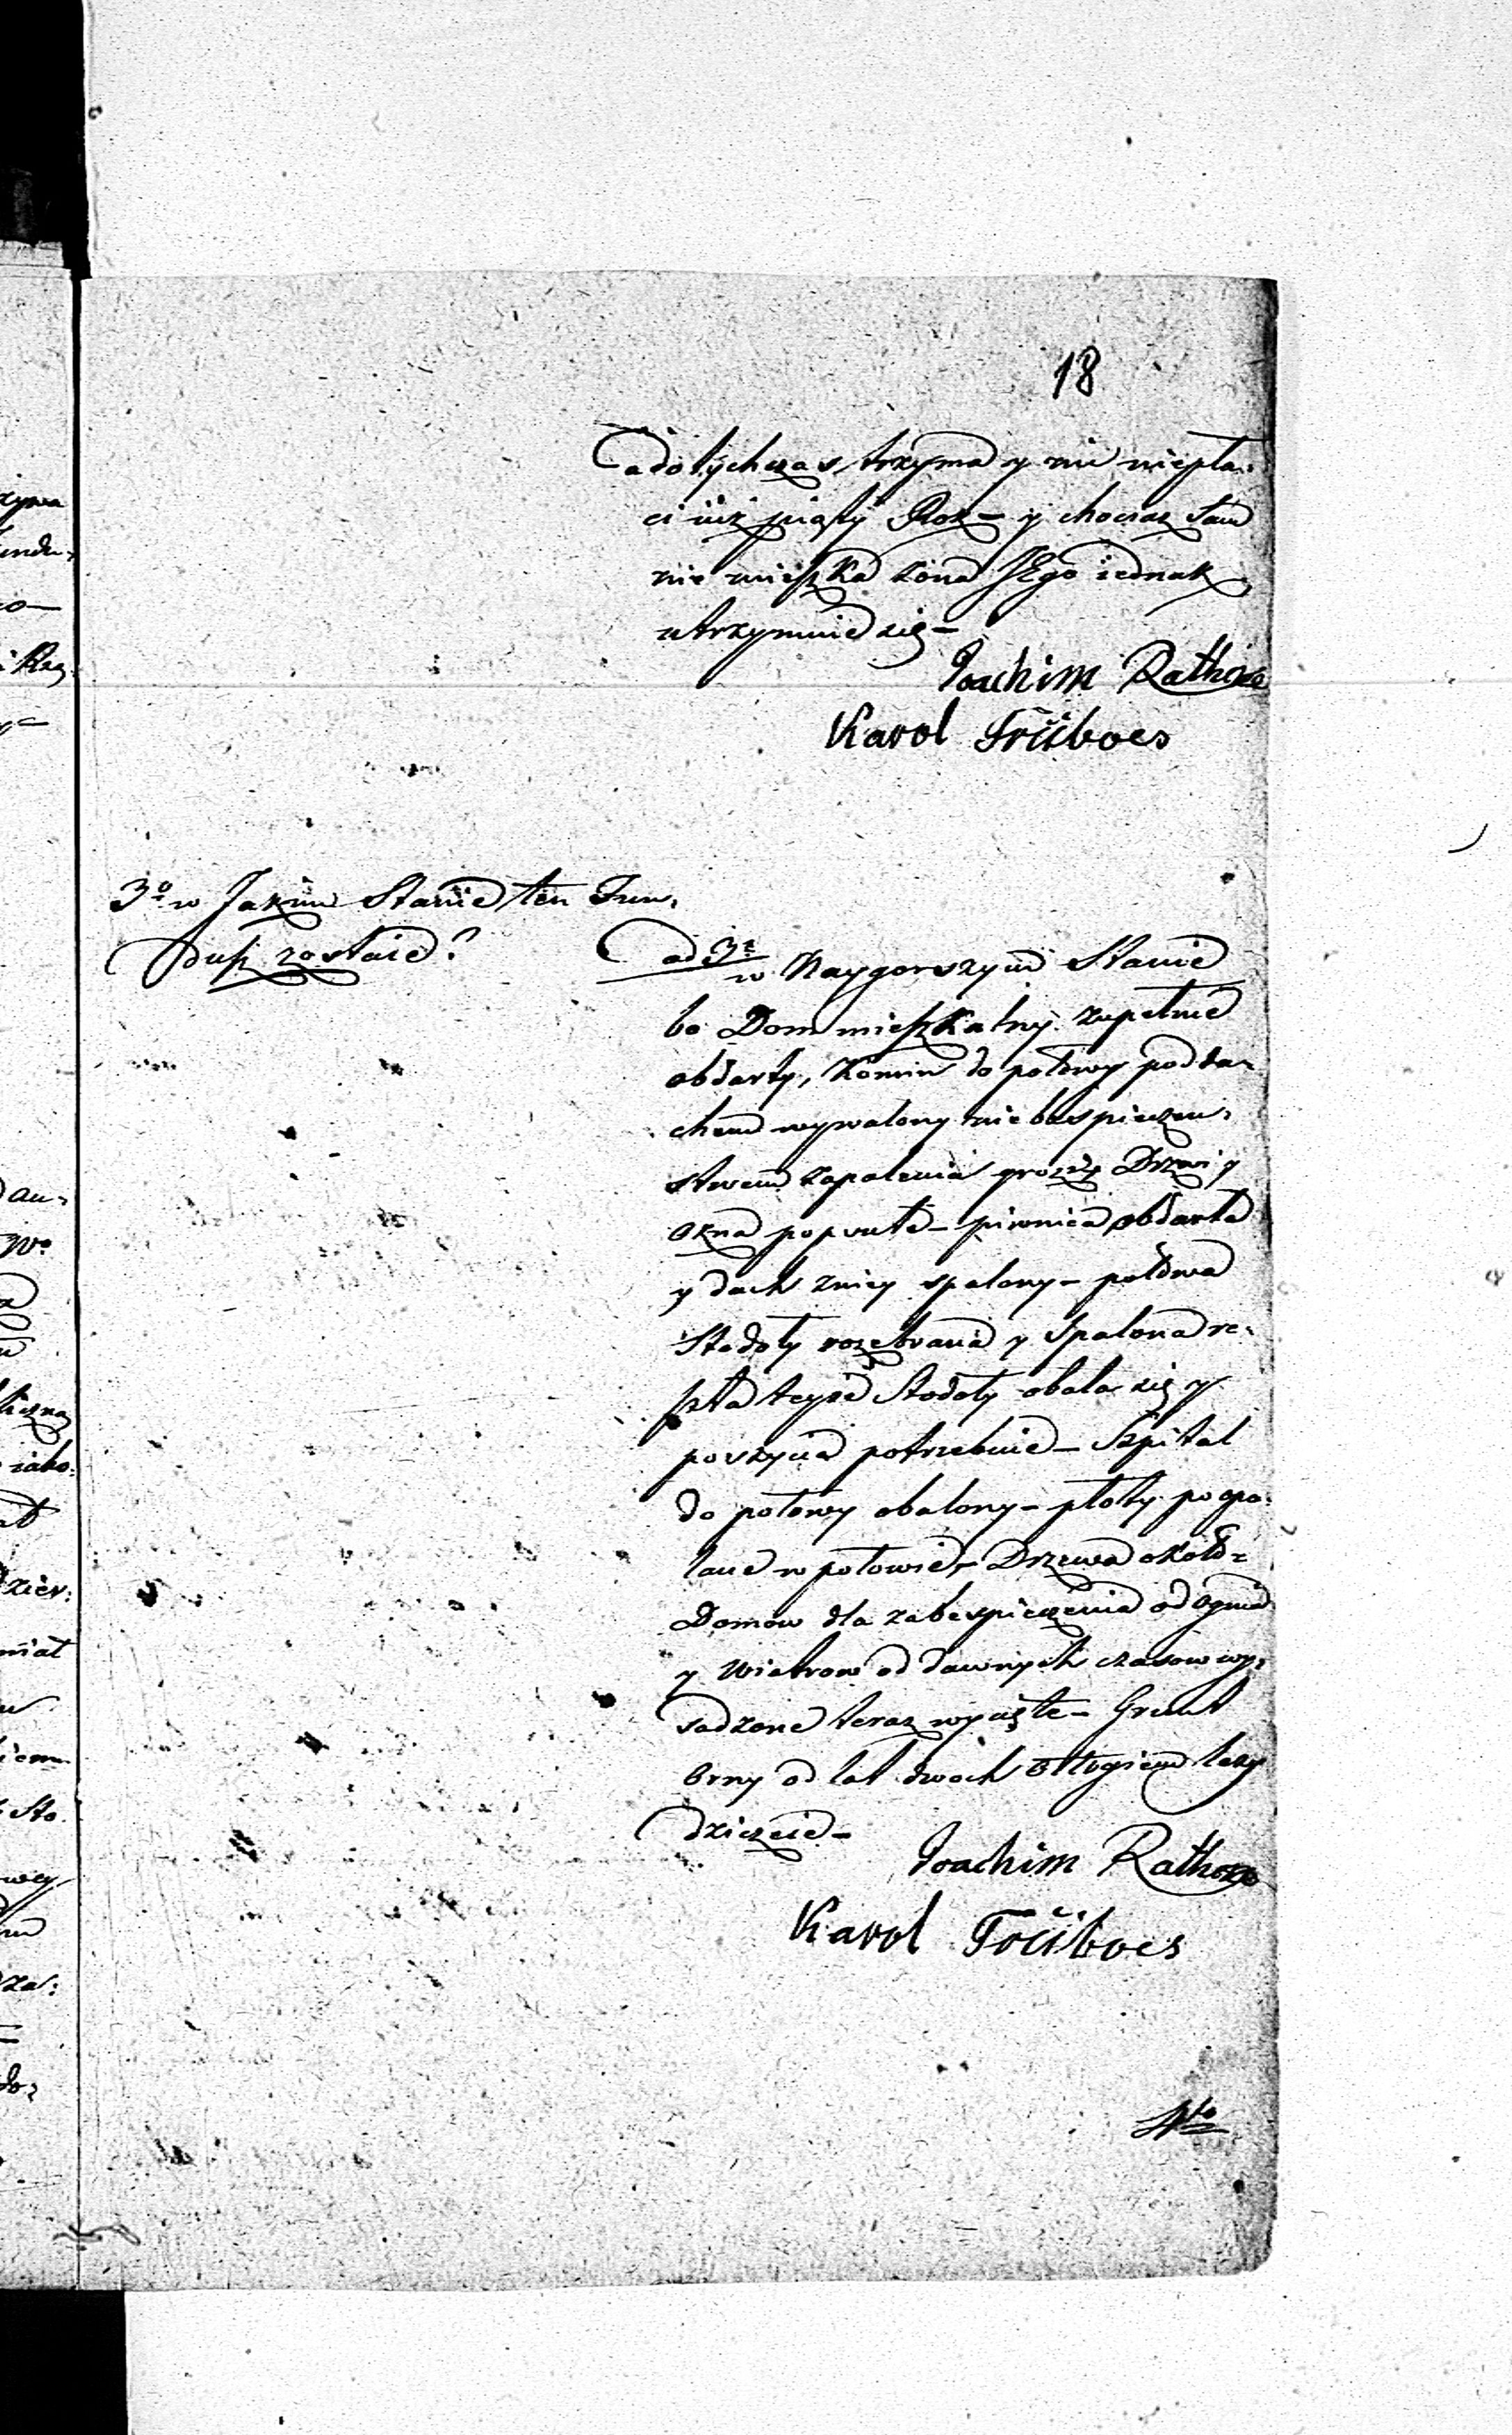 18
a dotychczas trzyma y nic niepła,
ci iuż piąty Rok – y chociaz sam
nie mieszka żona JEgo iednak
utrzymuie się –
Joachim Rathcze
Karol Trüboes
3º w Jakim Stanie ten Fun,
dusz zostaie?
ad 3ª
w Naygorszym Stanie
bo Dom mieszkalny zupełnie
obdarty, Komin do połowy pod da,
chem wywalony niebespieczen,
stwem zapalenia grozi, Drzwi y
okna popsute – piwnica obdarta
y dach zniey spalony – połowa
Stodoły rozebrana y spalona re,
szta teyże Stodoły obala się y
poszycia potrzebuie – Szpital
do połowy obalony – płoty popa,
lane w połowie, – Drzewa około
Domow dla zabespieczenia od ognia
y wiatrow od dawnych czasow wy,
sadzone teraz wycięte – Grunt
orny od lat dwoch odłogiem leży
dziczeie –
Joachim Rathcze
Karol Trüboes
4to